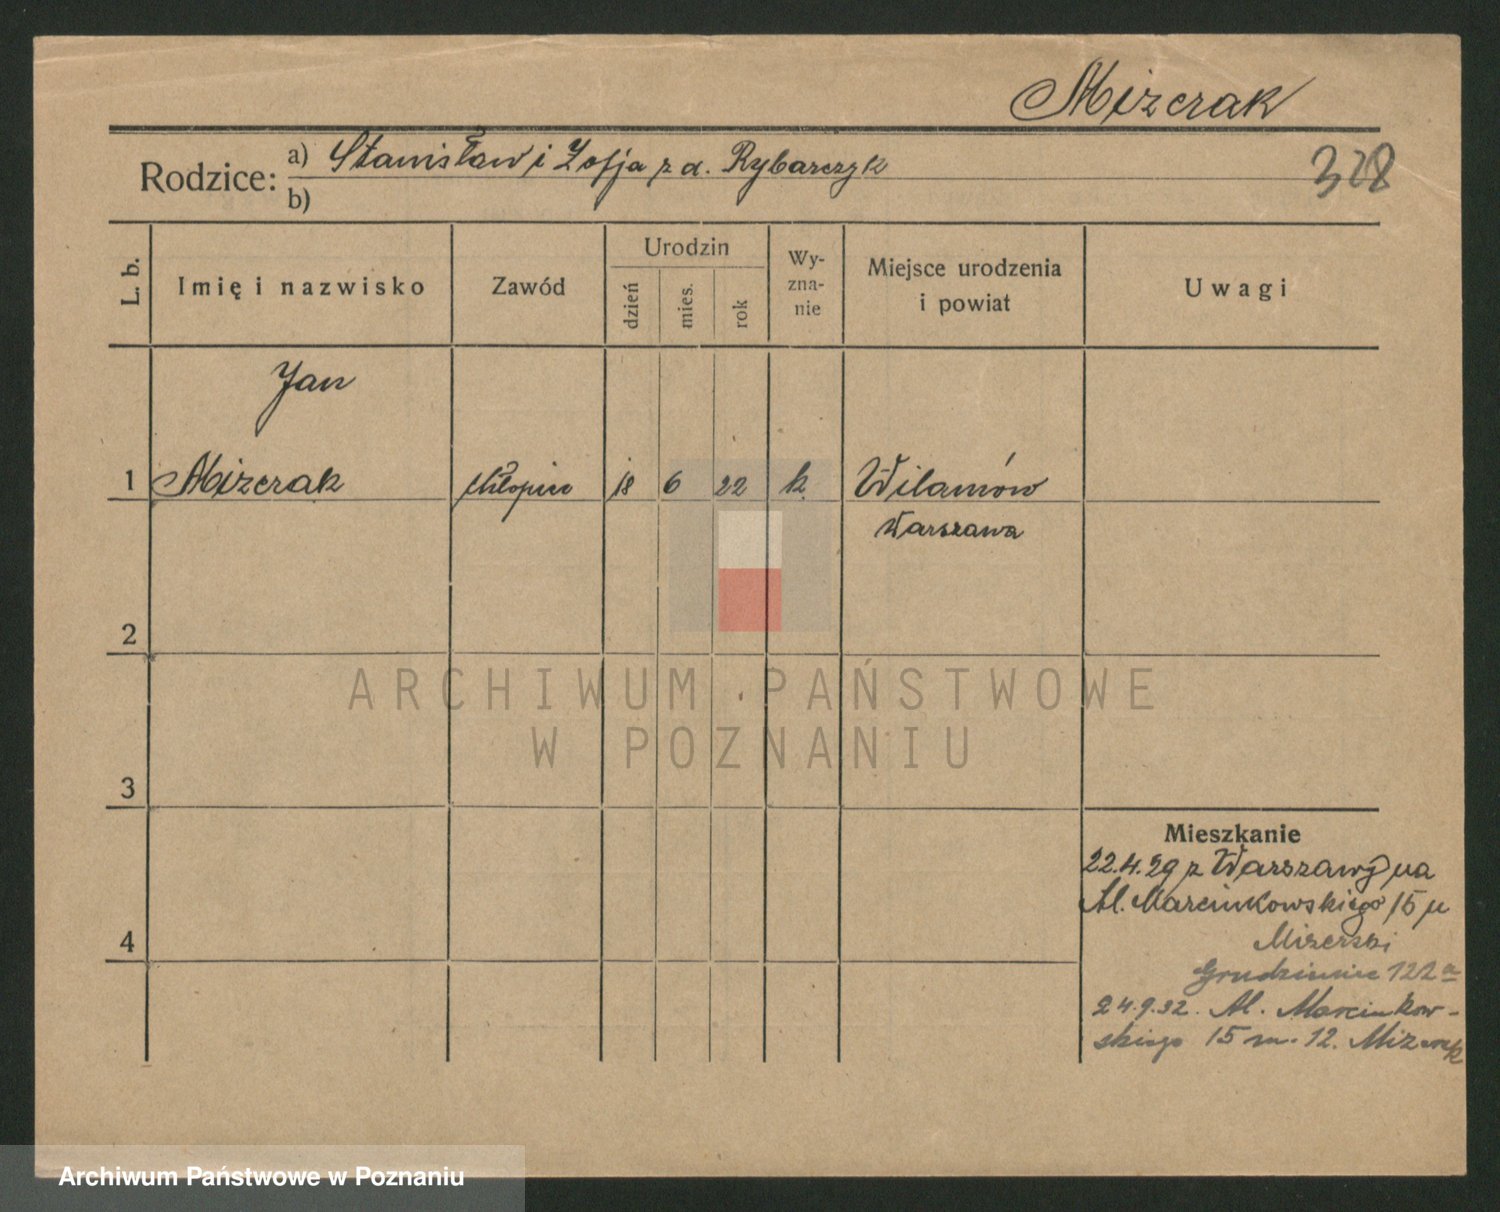 Mizerak
Rodzice: a) Stanisław i Zofja z d. Rybarczyk
b)
328
L. b.
Imię i nazwisko
Zawód
Urodzin
dzień
mies.
rok
Wy-
zna-
nie
Miejsce urodzenia
i powiat
Uwagi
Jan
1 Mizerak chłopiec 18 6 22 k. Wilamów
Warszawa
2
3
4
Mieszkanie
22.4.29 z Warszawy na
Al. Marcinkowskiego 15 u
Mizerski
Grudzieniec 122a
24.9.32. Al. Marcinkow-
skiego 15 m. 12. Mizerak
ARCHIWUM PAŃSTWOWE
W POZNANIU
Archiwum Państwowe w Poznaniu